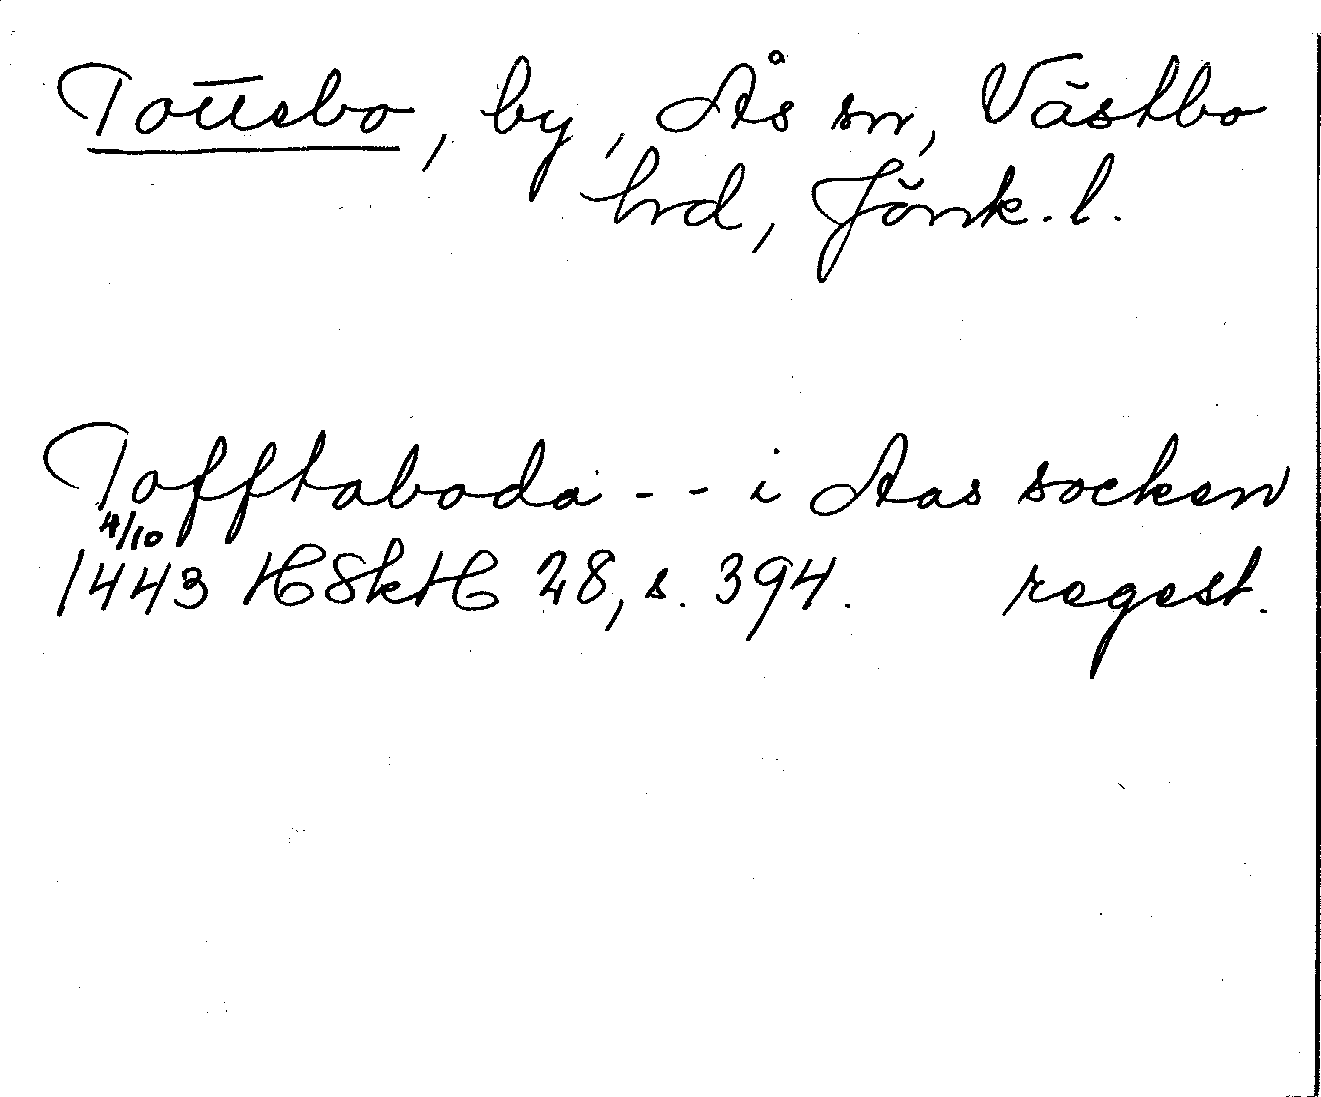 Tottebo, by, Ås sn, Västbo
hrd, Jönk. l.
Tofftaboda - - i Aas socken
4/10
1443 HSkH 28, s. 394. regest.